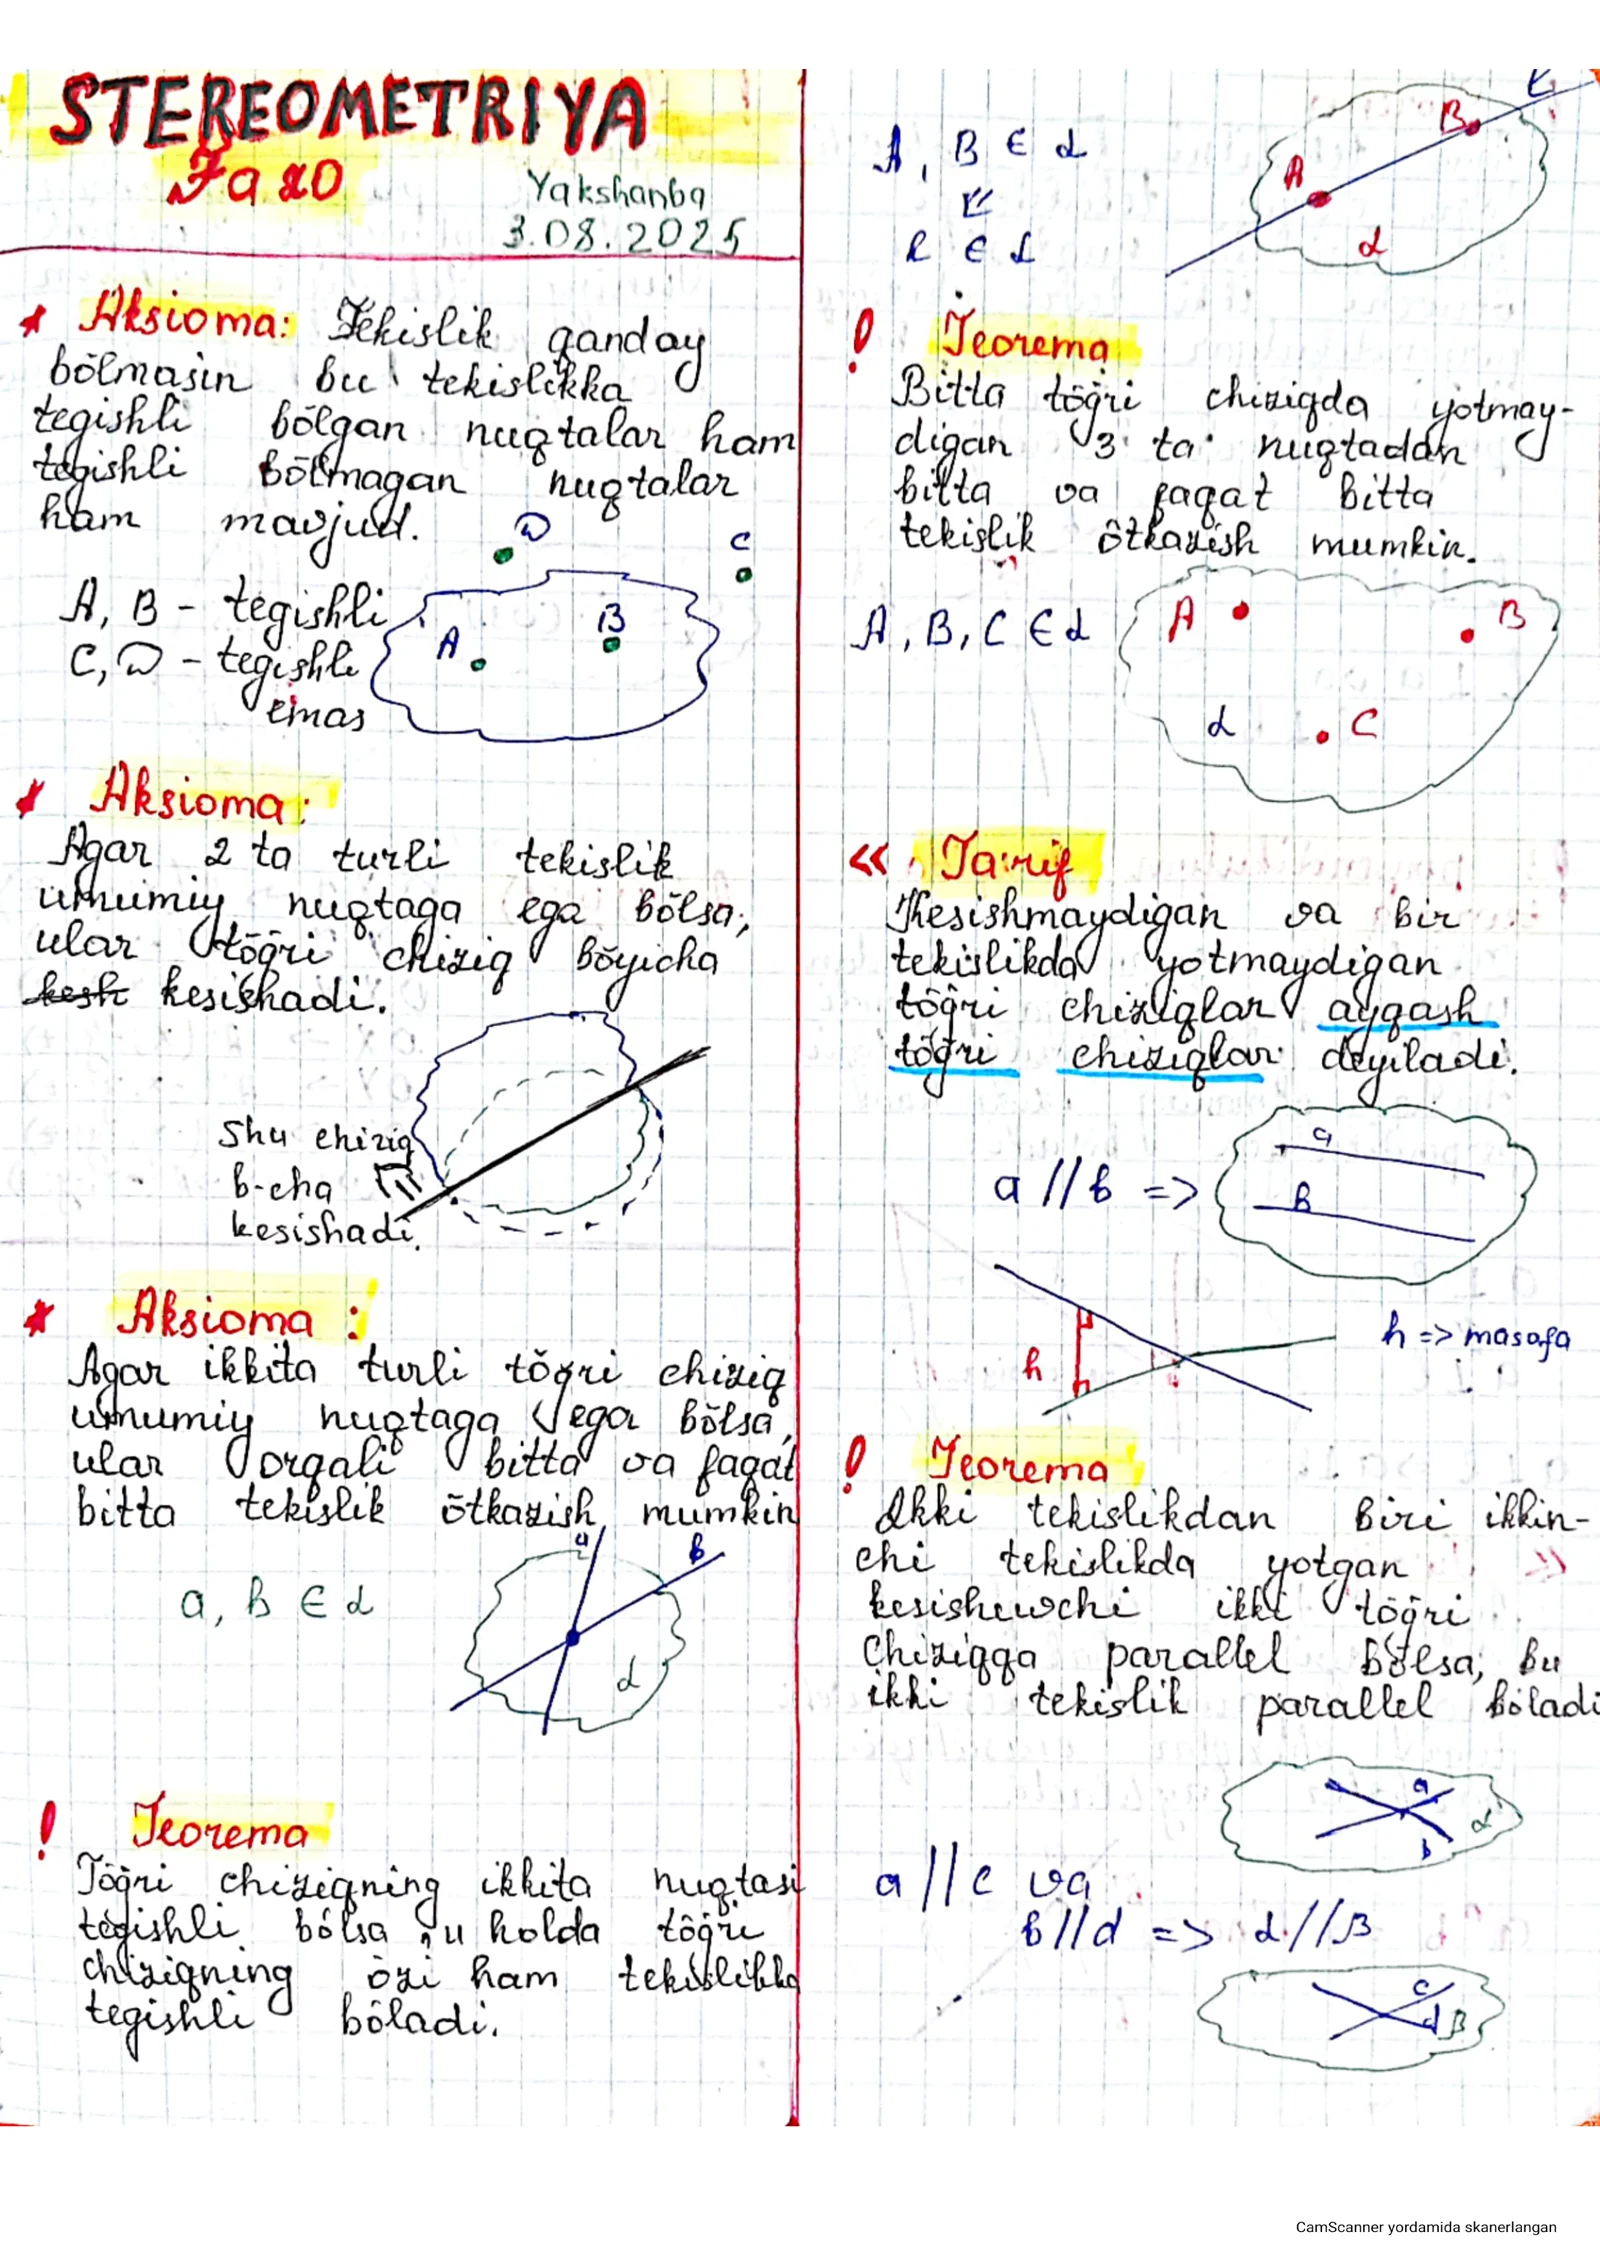 STEREOMETRIYA
Fazo
Yakshanba
3.08.2025
* Aksioma: Tekislik qanday
bõlmasin bu tekislikka
tegishli bõlgan nuqtalar ham
tegishli bõlmagan nuqtalar
ham mavjud.
D
C
A, B - tegishli
A
B
C, D - tegishli
emas
* Aksioma:
Agar 2 ta turli tekislik
umumiy nuqtaga ega bõlsa,
ular tõg̃ri chiziq bõyicha
kesh kesishadi.
Shu chiziq
b-cha
kesishadi.
* Aksioma :
Agar ikkita turli tõg̃ri chiziq
umumiy nuqtaga ega bõlsa,
ular orqali bitta va faqat
bitta tekislik õtkazish mumkin
a
b
a, b ∈ α
α
! Teorema
Tõg̃ri chiziqning ikkita nuqtasi
tegishli bõlsa, u holda tõg̃ri
chiziqning õzi ham tekislikka
tegishli bõladi.
l
A, B ∈ α
B
A
l ∈ α
α
! Teorema
Bitta tõg̃ri chiziqda yotmay-
digan 3 ta nuqtadan
bitta va faqat bitta
tekislik õtkazish mumkin.
A, B, C ∈ α
A
B
α
C
<< Ta'rif
Kesishmaydigan va bir
tekislikda yotmaydigan
tõg̃ri chiziqlar ayqash
tõg̃ri chiziqlar deyiladi.
a
a // b =>
b
h => masofa
h
! Teorema
Ikki tekislikdan biri ikkin-
chi tekislikda yotgan >>
kesishuvchi ikki tõg̃ri
chiziqqa parallel bõlsa, bu
ikki tekislik parallel bõladi
a
α
b
a // c va
b // d => α // β
c
d
β
CamScanner yordamida skanerlangan